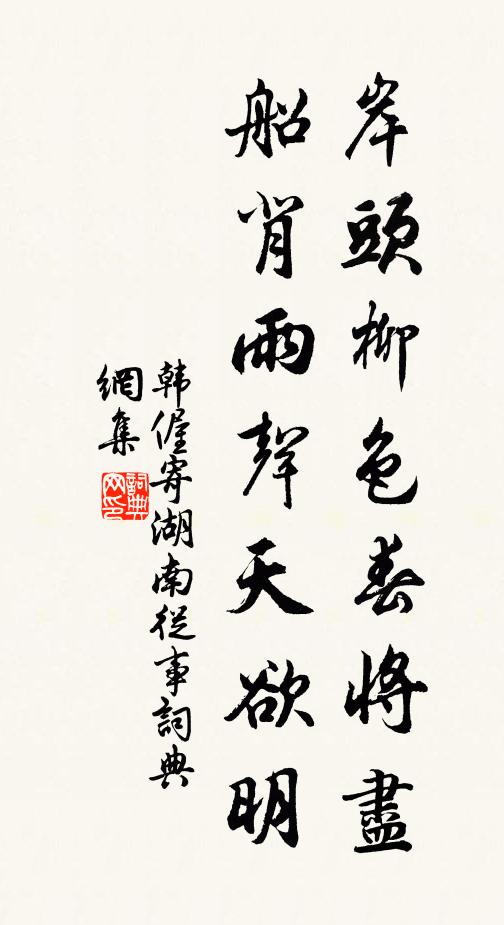 岸頭柳色春將盡
船背雨聲天欲明
韓偓寄湖南從事詞典
網集
詞典
网印